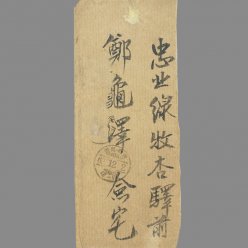 忠州綠牧杏驛前
鄭龜澤 僉宅